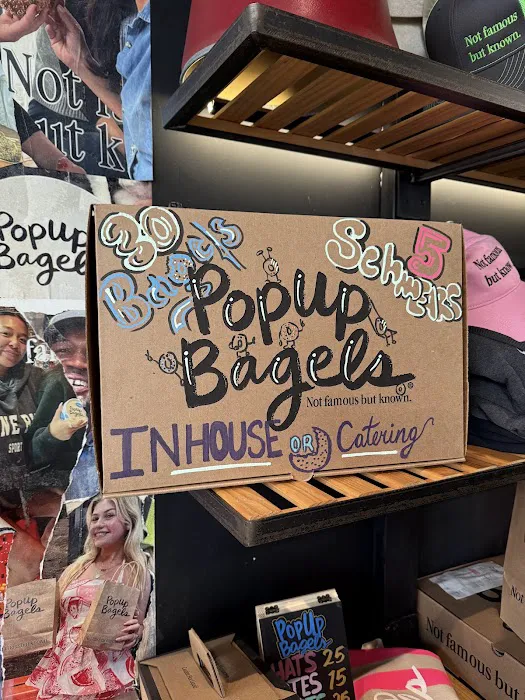 Not
but k
Not famous
but known.
PopUp
Bagel
30
Bagels
5
Schmears
PopUp
Bagels®
Not famous but known.
INHOUSE OR Catering
Not famous
but known.
SPORT
PopUp
Bagels
PopUp
Bagels
PopUp
Bagels
HATS 25
TES 15
Not famous bu
Not